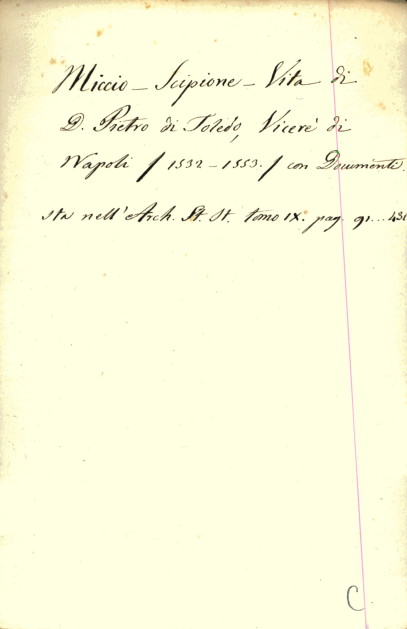 Miccio - Scipione - Vita di
D. Pietro di Toledo, Vicerè di
Napoli / 1532 - 1553. / con Documenti.
sta nell'Arch. St. It. tomo IX. pag. 91...
C